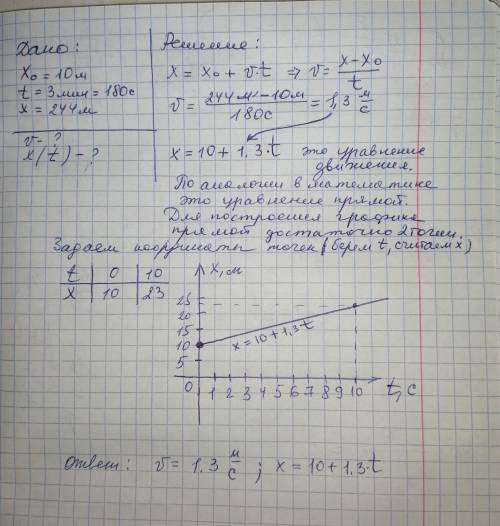 Дано:
x₀ = 10 м
t = 3 мин = 180 с
x = 244 м
v - ?
x(t) - ?
Решение:
x = x₀ + v·t ⇒ v = (x - x₀)/t
v = (244 м - 10 м)/180 с = 1,3 м/с
x = 10 + 1,3·t это уравнение
движения.
По аналогии в математике
это уравнение прямой.
Для построения графика
прямой достаточно 2 точки.
Задаем координаты точек (берем t, считаем x)
t | 0 | 10
x | 10 | 23
x, м
25
20
15
10
5
x = 10 + 1,3 t
0 1 2 3 4 5 6 7 8 9 10 t, с
Ответ: v = 1,3 м/с ; x = 10 + 1,3·t